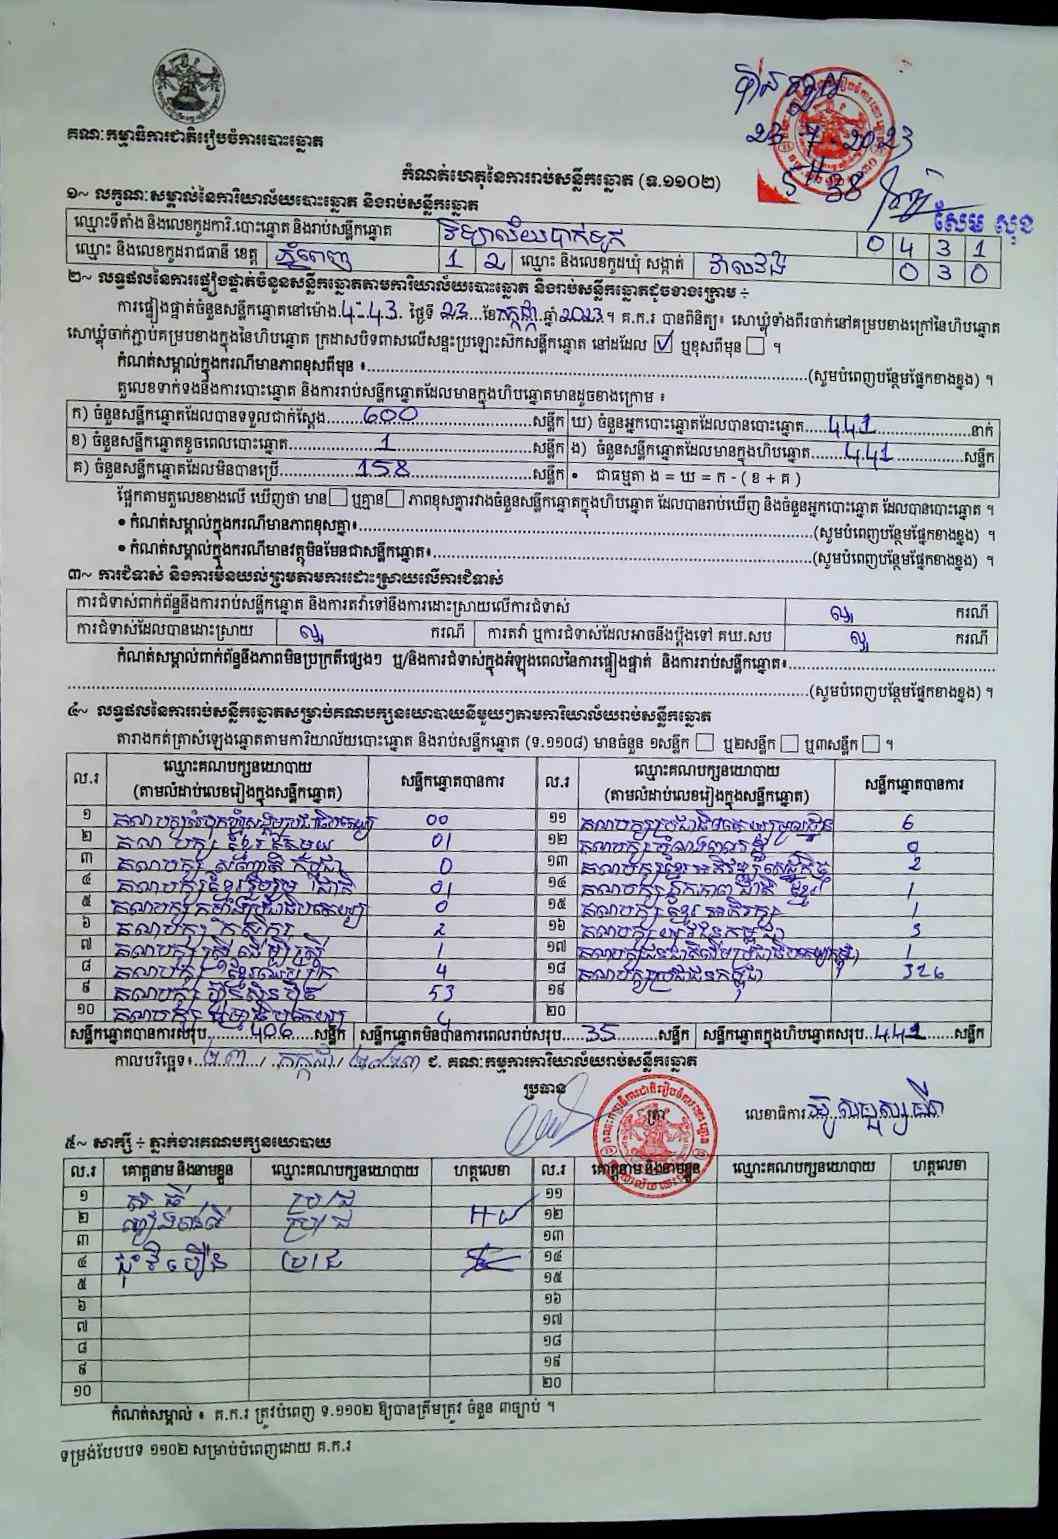 23 7 2023
5H 38
គណៈកម្មាធិការជាតិរៀបចំការបោះឆ្នោត
កំណត់ហេតុនៃការរាប់សន្លឹកឆ្នោត (ទ.១១០២)
សែម សុខ
១~ លក្ខណៈសម្គាល់នៃការិយាល័យបោះឆ្នោត និងរាប់សន្លឹកឆ្នោត
ឈ្មោះទីតាំង និងលេខកូដការិ.បោះឆ្នោត និងរាប់សន្លឹកឆ្នោត វិទ្យាល័យបាក់ទូក 0 4 3 1
ឈ្មោះ និងលេខកូដរាជធានី ខេត្ត ភ្នំពេញ 1 2 ឈ្មោះ និងលេខកូដឃុំ សង្កាត់ វាលវង់ 0 3 0
២~ លទ្ធផលនៃការផ្ទៀងផ្ទាត់ចំនួនសន្លឹកឆ្នោតតាមការិយាល័យបោះឆ្នោត និងរាប់សន្លឹកឆ្នោតដូចខាងក្រោម ÷
ការផ្ទៀងផ្ទាត់ចំនួនសន្លឹកឆ្នោតនៅម៉ោង.4:43. ថ្ងៃទី 23...ខែកក្កដា ឆ្នាំ2023។ គ.ក.រ បានពិនិត្យ៖ សោឃ្លុំទាំងពីរចាក់នៅគម្របខាងក្រៅនៃហិបឆ្នោត
សោឃ្លុំចាក់ភ្ជាប់គម្របខាងក្នុងនៃហិបឆ្នោត ក្រដាសបិទពាសលើសន្ទះប្រឡោះស៊កសន្លឹកឆ្នោត នៅដដែល ☑ ឬខុសពីមុន ☐ ។
កំណត់សម្គាល់ក្នុងករណីមានភាពខុសពីមុន ៖...(សូមបំពេញបន្ថែមផ្នែកខាងខ្នង) ។
តួលេខទាក់ទងនឹងការបោះឆ្នោត និងការរាប់សន្លឹកឆ្នោតដែលមានក្នុងហិបឆ្នោតមានដូចខាងក្រោម ៖
ក) ចំនួនសន្លឹកឆ្នោតដែលបានទទួលជាក់ស្តែង...600...សន្លឹក ឃ) ចំនួនអ្នកបោះឆ្នោតដែលបានបោះឆ្នោត...441...នាក់
ខ) ចំនួនសន្លឹកឆ្នោតខូចពេលបោះឆ្នោត...1...សន្លឹក ង) ចំនួនសន្លឹកឆ្នោតដែលមានក្នុងហិបឆ្នោត...441...សន្លឹក
គ) ចំនួនសន្លឹកឆ្នោតដែលមិនបានប្រើ...158...សន្លឹក • ជាធម្មតា ង = ឃ = ក - ( ខ + គ )
ផ្អែកតាមតួលេខខាងលើ ឃើញថា មាន ☐ ឬគ្មាន ☐ ភាពខុសគ្នារវាងចំនួនសន្លឹកឆ្នោតក្នុងហិបឆ្នោត ដែលបានរាប់ឃើញ និងចំនួនអ្នកបោះឆ្នោត ដែលបានបោះឆ្នោត ។
• កំណត់សម្គាល់ក្នុងករណីមានភាពខុសគ្នា៖...(សូមបំពេញបន្ថែមផ្នែកខាងខ្នង) ។
• កំណត់សម្គាល់ក្នុងករណីមានវត្ថុមិនមែនជាសន្លឹកឆ្នោត៖...(សូមបំពេញបន្ថែមផ្នែកខាងខ្នង) ។
៣~ ការជំទាស់ និងការមិនយល់ព្រមតាមការដោះស្រាយលើការជំទាស់
ការជំទាស់ពាក់ព័ន្ធនឹងការរាប់សន្លឹកឆ្នោត និងការតវ៉ាទៅនឹងការដោះស្រាយលើការជំទាស់ ករណី
ការជំទាស់ដែលបានដោះស្រាយ ករណី ការតវ៉ា ឬការជំទាស់ដែលអាចនឹងប្តឹងទៅ គឃ.សប ករណី
កំណត់សម្គាល់ពាក់ព័ន្ធនឹងភាពមិនប្រក្រតីផ្សេងៗ ឬ/និងការជំទាស់ក្នុងអំឡុងពេលនៃការផ្ទៀងផ្ទាត់ និងការរាប់សន្លឹកឆ្នោត៖...
...(សូមបំពេញបន្ថែមផ្នែកខាងខ្នង) ។
៤~ លទ្ធផលនៃការរាប់សន្លឹកឆ្នោតសម្រាប់គណបក្សនយោបាយនីមួយៗតាមការិយាល័យរាប់សន្លឹកឆ្នោត
តារាងកត់ត្រាសំឡេងឆ្នោតតាមការិយាល័យបោះឆ្នោត និងរាប់សន្លឹកឆ្នោត (ទ.១១០៨) មានចំនួន ១សន្លឹក ☐ ឬ២សន្លឹក ☐ ឬ៣សន្លឹក ☐ ។
ល.រ ឈ្មោះគណបក្សនយោបាយ (តាមលំដាប់លេខរៀងក្នុងសន្លឹកឆ្នោត) សន្លឹកឆ្នោតបានការ ល.រ ឈ្មោះគណបក្សនយោបាយ (តាមលំដាប់លេខរៀងក្នុងសន្លឹកឆ្នោត) សន្លឹកឆ្នោតបានការ
១ គណបក្សសំបុកឃ្មុំសង្គមប្រជាធិបតេយ្យ 00 ១១ គណបក្សប្រជាធិបតេយ្យមូលដ្ឋាន 6
២ គណបក្សខ្មែរតែមួយ 01 ១២ គណបក្សកម្លាំងពលរដ្ឋ 0
៣ គណបក្សសញ្ជាតិកម្ពុជា 0 ១៣ គណបក្សខ្មែរអភិវឌ្ឍន៍សេដ្ឋកិច្ច 2
៤ គណបក្សខ្មែររួបរួមជាតិ 01 ១៤ គណបក្សឯកភាពជាតិខ្មែរ 1
៥ គណបក្សកម្លាំងប្រជាធិបតេយ្យ 0 ១៥ គណបក្សខ្មែរអភិរក្ស 1
៦ គណបក្សកសិករ 2 ១៦ គណបក្សយុវជនកម្ពុជា 3
៧ គណបក្សស្ត្រីដើម្បីស្ត្រី 1 ១៧ គណបក្សជនជាតិដើមប្រជាធិបតេយ្យកម្ពុជា 1
៨ គណបក្សខ្មែរឈប់ក្រ 4 ១៨ គណបក្សប្រជាជនកម្ពុជា 326
៩ គណបក្សហ៊្វុនស៊ិនប៉ិច 53 ១៩
១០ គណបក្សធម្មាធិបតេយ្យ 4 ២០
សន្លឹកឆ្នោតបានការសរុប...406...សន្លឹក សន្លឹកឆ្នោតមិនបានការពេលរាប់សរុប...35...សន្លឹក សន្លឹកឆ្នោតក្នុងហិបឆ្នោតសរុប..441...សន្លឹក
កាលបរិច្ឆេទ៖..២៣./.កក្កដា./.២០២៣ ជ. គណៈកម្មការការិយាល័យរាប់សន្លឹកឆ្នោត
ប្រធាន
ត្រា
លេខាធិការ
៥~ សាក្សី ÷ ភ្នាក់ងារគណបក្សនយោបាយ
ល.រ គោត្តនាម និងនាមខ្លួន ឈ្មោះគណបក្សនយោបាយ ហត្ថលេខា ល.រ គោត្តនាម និងនាមខ្លួន ឈ្មោះគណបក្សនយោបាយ ហត្ថលេខា
១ ប្រ/ជ ១១
២ ប្រ/ជ ១២
៣ ១៣
៤ ប្រ/ជ ១៤
៥ ១៥
៦ ១៦
៧ ១៧
៨ ១៨
៩ ១៩
១០ ២០
កំណត់សម្គាល់ ៖ គ.ក.រ ត្រូវបំពេញ ទ.១១០២ ឱ្យបានត្រឹមត្រូវ ចំនួន ៣ច្បាប់ ។
ទម្រង់បែបបទ ១១០២ សម្រាប់បំពេញដោយ គ.ក.រ